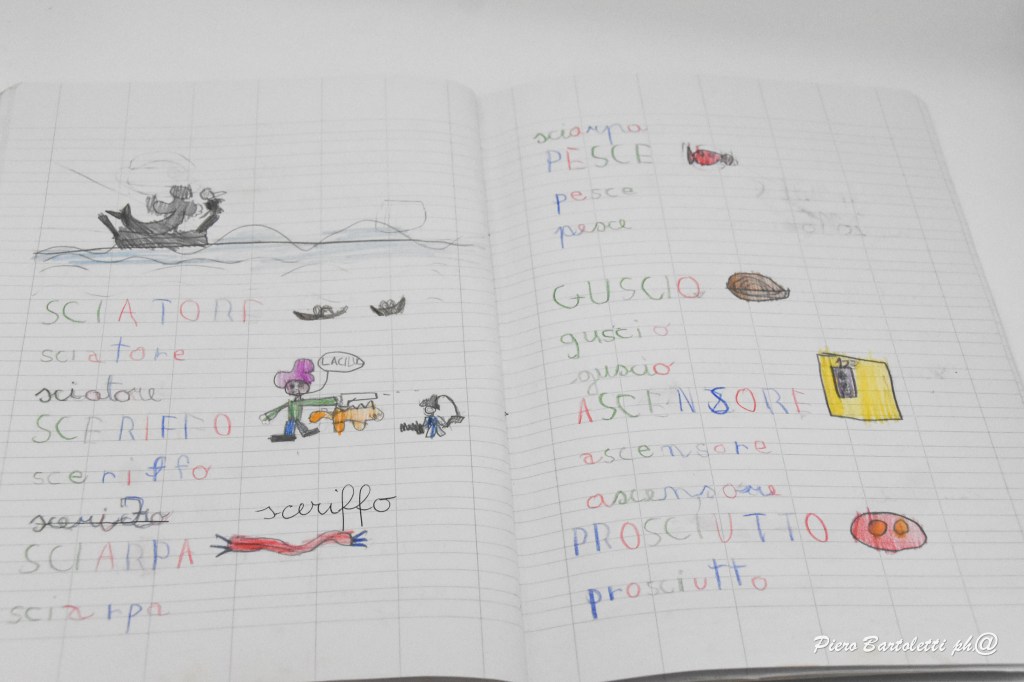 SCIATORE
sciatore
sciatore
LACILE
SCERIFFO
sceriffo
sceriffo
SCIARPA
sciarpa
sciarpa
PESCE
pesce
pesce
GUSCIO
guscio
guscio
ASCENSORE
ascensore
ascensore
PROSCIUTTO
prosciutto
Piero Bartoletti ph@